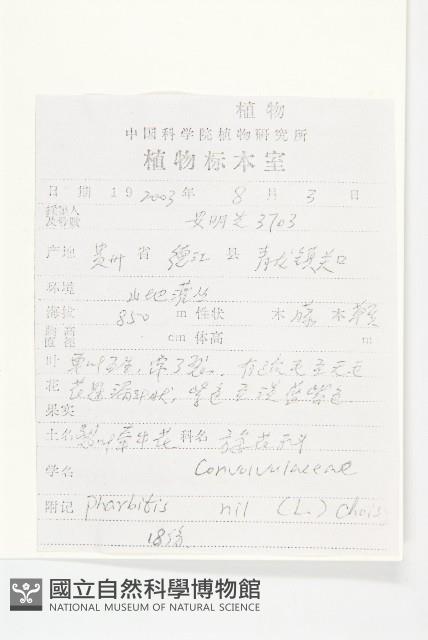 植物
中国科学院植物研究所
植物标本室
日期 19 2003 年 8 月 3 日
采集人
及号数 安明芝 3703
产地 贵州 省 德江 县 青龙镇关口
环境 山地灌丛
海拔 850 m 性状 木 藤 本 草
胸高
直径 cm 体高 m
叶
花 花冠漏斗状, 紫色至淡蓝紫色
果实
土名 裂叶牵牛花 科名 旋花科
学名 Convolvulaceae
附记 pharbitis nil (L.) Chois
18份
國立自然科學博物館
NATIONAL MUSEUM OF NATURAL SCIENCE